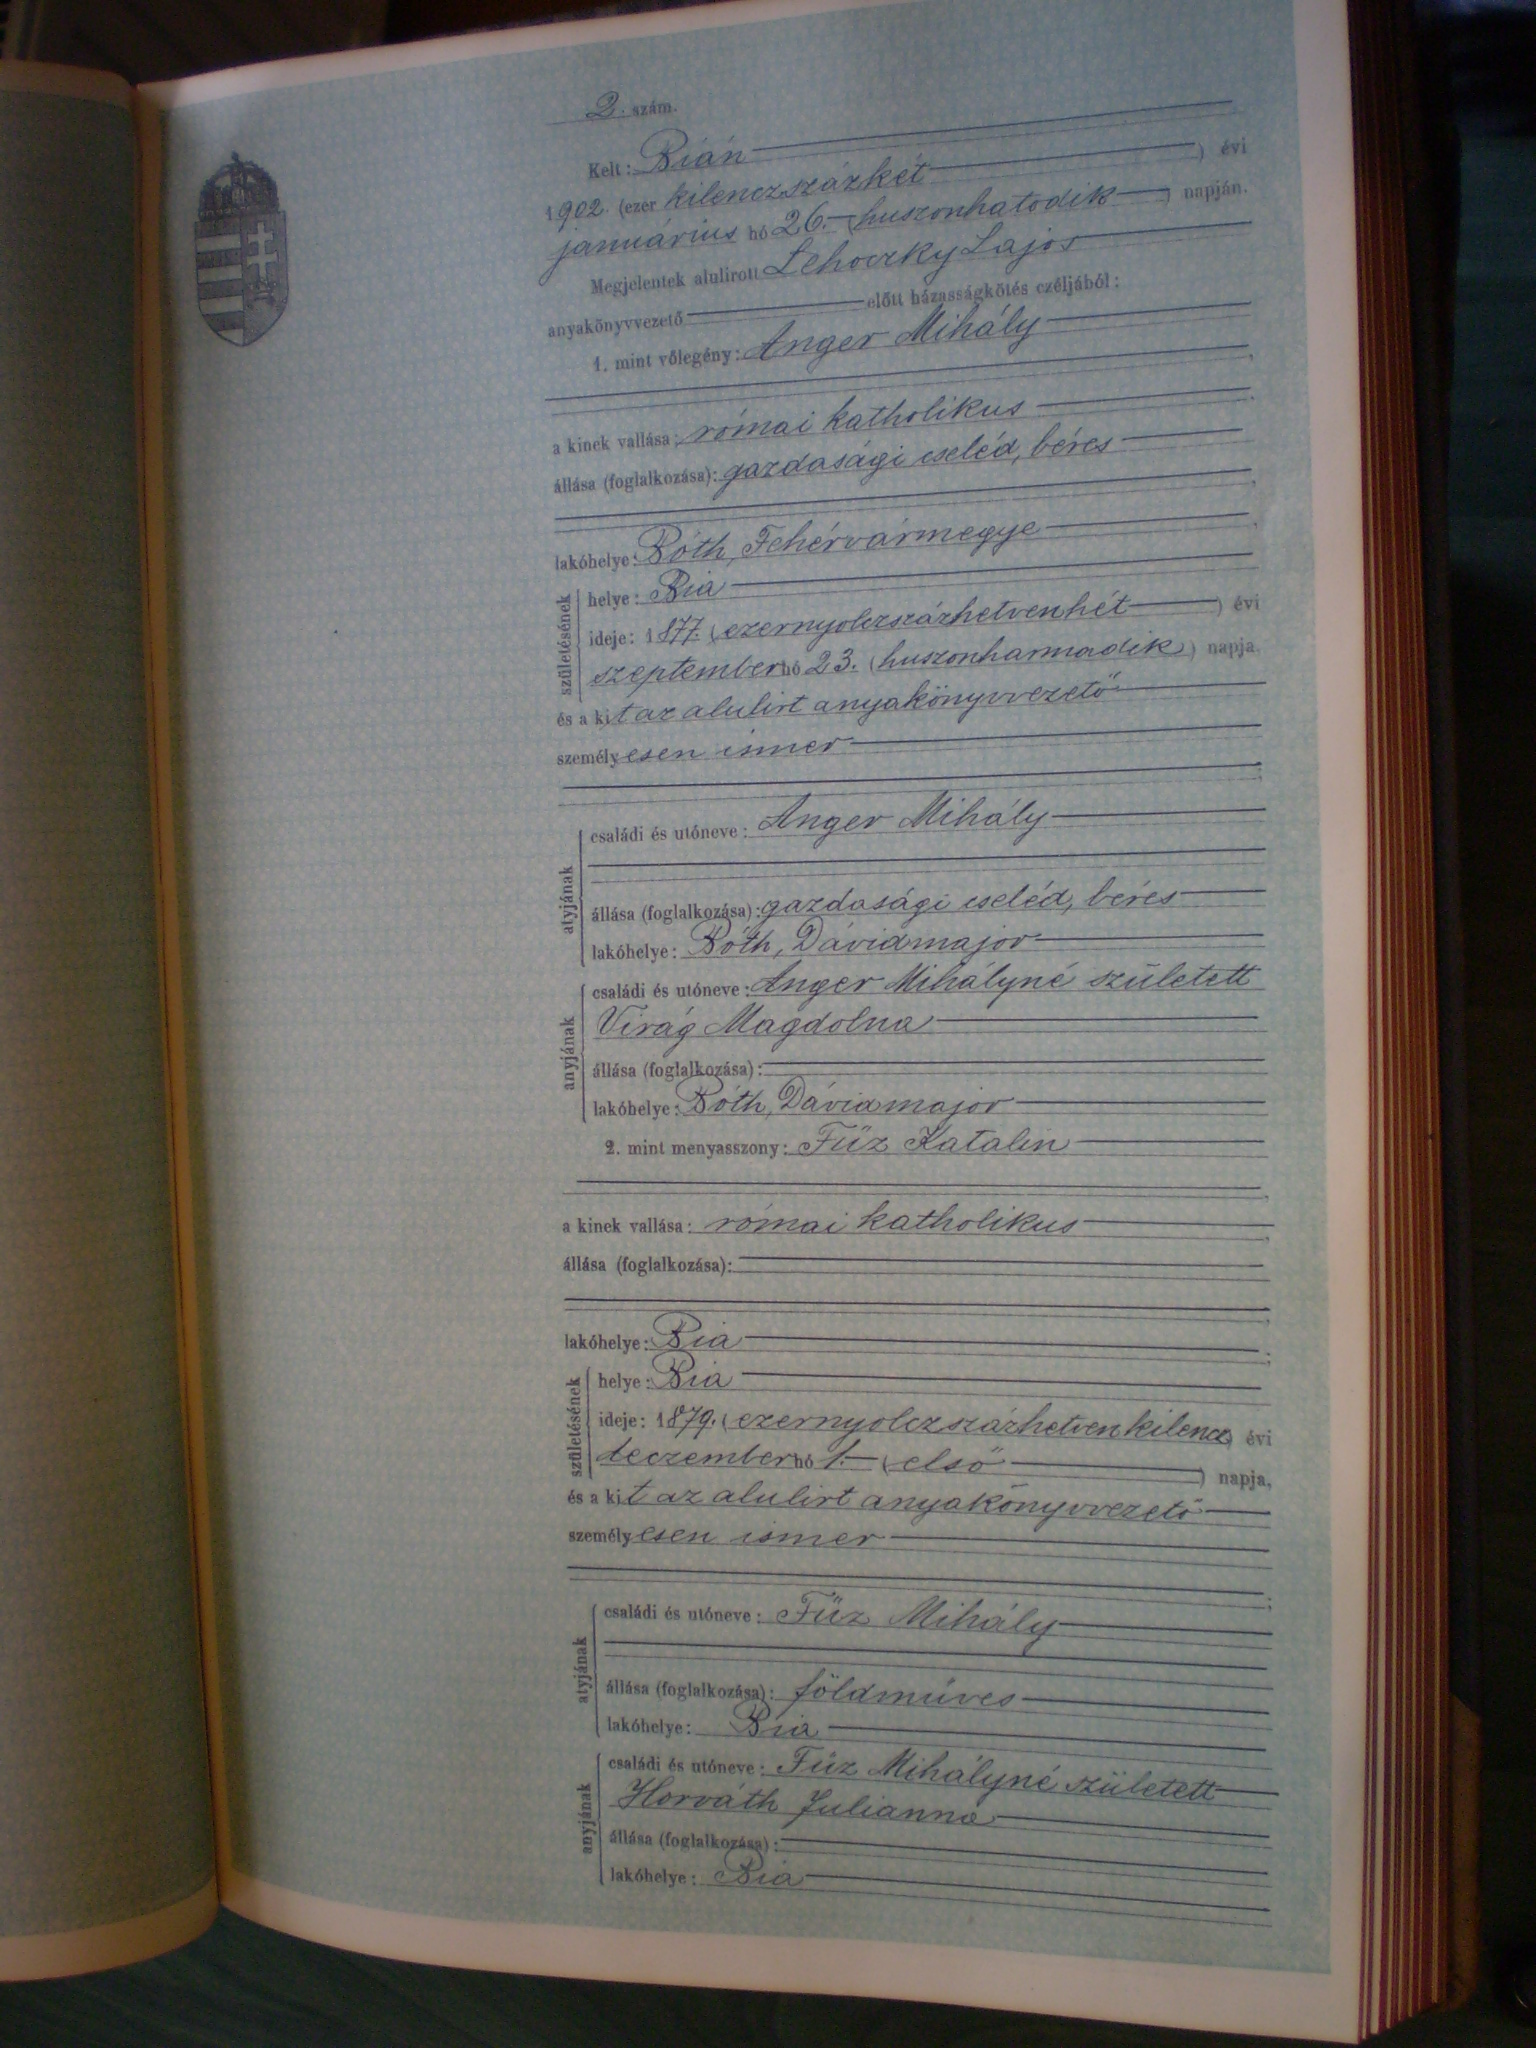 2. szám.
Kelt: Bián
1902. (ezer kilenczszázkét ) évi
január​ius hó 26. (huszonhatodik ) napján.
Megjelentek alulirott Lehoczky Lajos
anyakönyvvezető előtt házasságkötés czéljából:
1. mint vőlegény: Anger Mihály
a kinek vallása: római katholikus
állása (foglalkozása): gazdasági cseléd, béres
lakóhelye: Bóth, Fehérvármegye
születésének
helye: Bia
ideje: 1877. (ezernyolczszázhetvenhét ) évi
szeptember hó 23. (huszonharmadik) napja,
és a kit az alulirt anyakönyvvezető
személyesen ismer
atyjának
családi és utóneve: Anger Mihály
állása (foglalkozása): gazdasági cseléd, béres
lakóhelye: Bóth, Dávidmajor
anyjának
családi és utóneve: Anger Mihályné született
Virág Magdolna
állása (foglalkozása):
lakóhelye: Bóth, Dávidmajor
2. mint menyasszony: Fűz Katalin
a kinek vallása: római katholikus
állása (foglalkozása):
lakóhelye: Bia
születésének
helye: Bia
ideje: 1879. (ezernyolczszázhetvenkilencz) évi
deczember hó 1. (első ) napja,
és a kit az alulirt anyakönyvvezető
személyesen ismer
atyjának
családi és utóneve: Fűz Mihály
állása (foglalkozása): földmüves
lakóhelye: Bia
anyjának
családi és utóneve: Fűz Mihályné született
Horváth Julianna
állása (foglalkozása):
lakóhelye: Bia